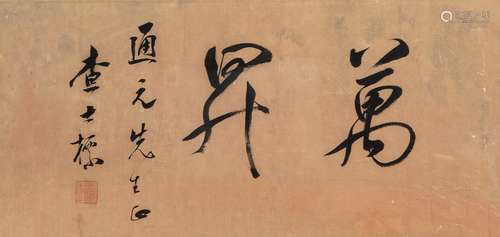 萬昇
通元先生正
查士標